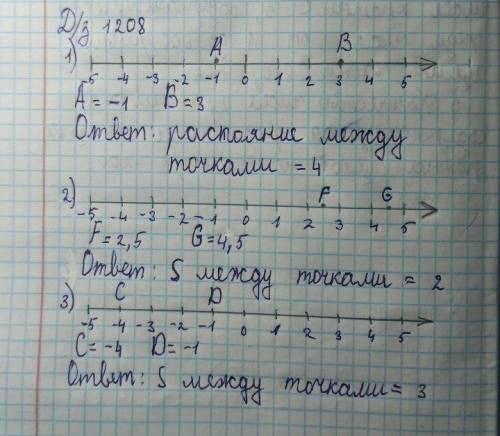 Д/з 1208
1) A B
-5 -4 -3 -2 -1 0 1 2 3 4 5
A = -1 B = 3
Ответ: растояние между
точками = 4
2) F G
-5 -4 -3 -2 -1 0 1 2 3 4 5
F = 2,5 G = 4,5
Ответ: S между точками = 2
3) C D
-5 -4 -3 -2 -1 0 1 2 3 4 5
C = -4 D = -1
Ответ: S между точками = 3